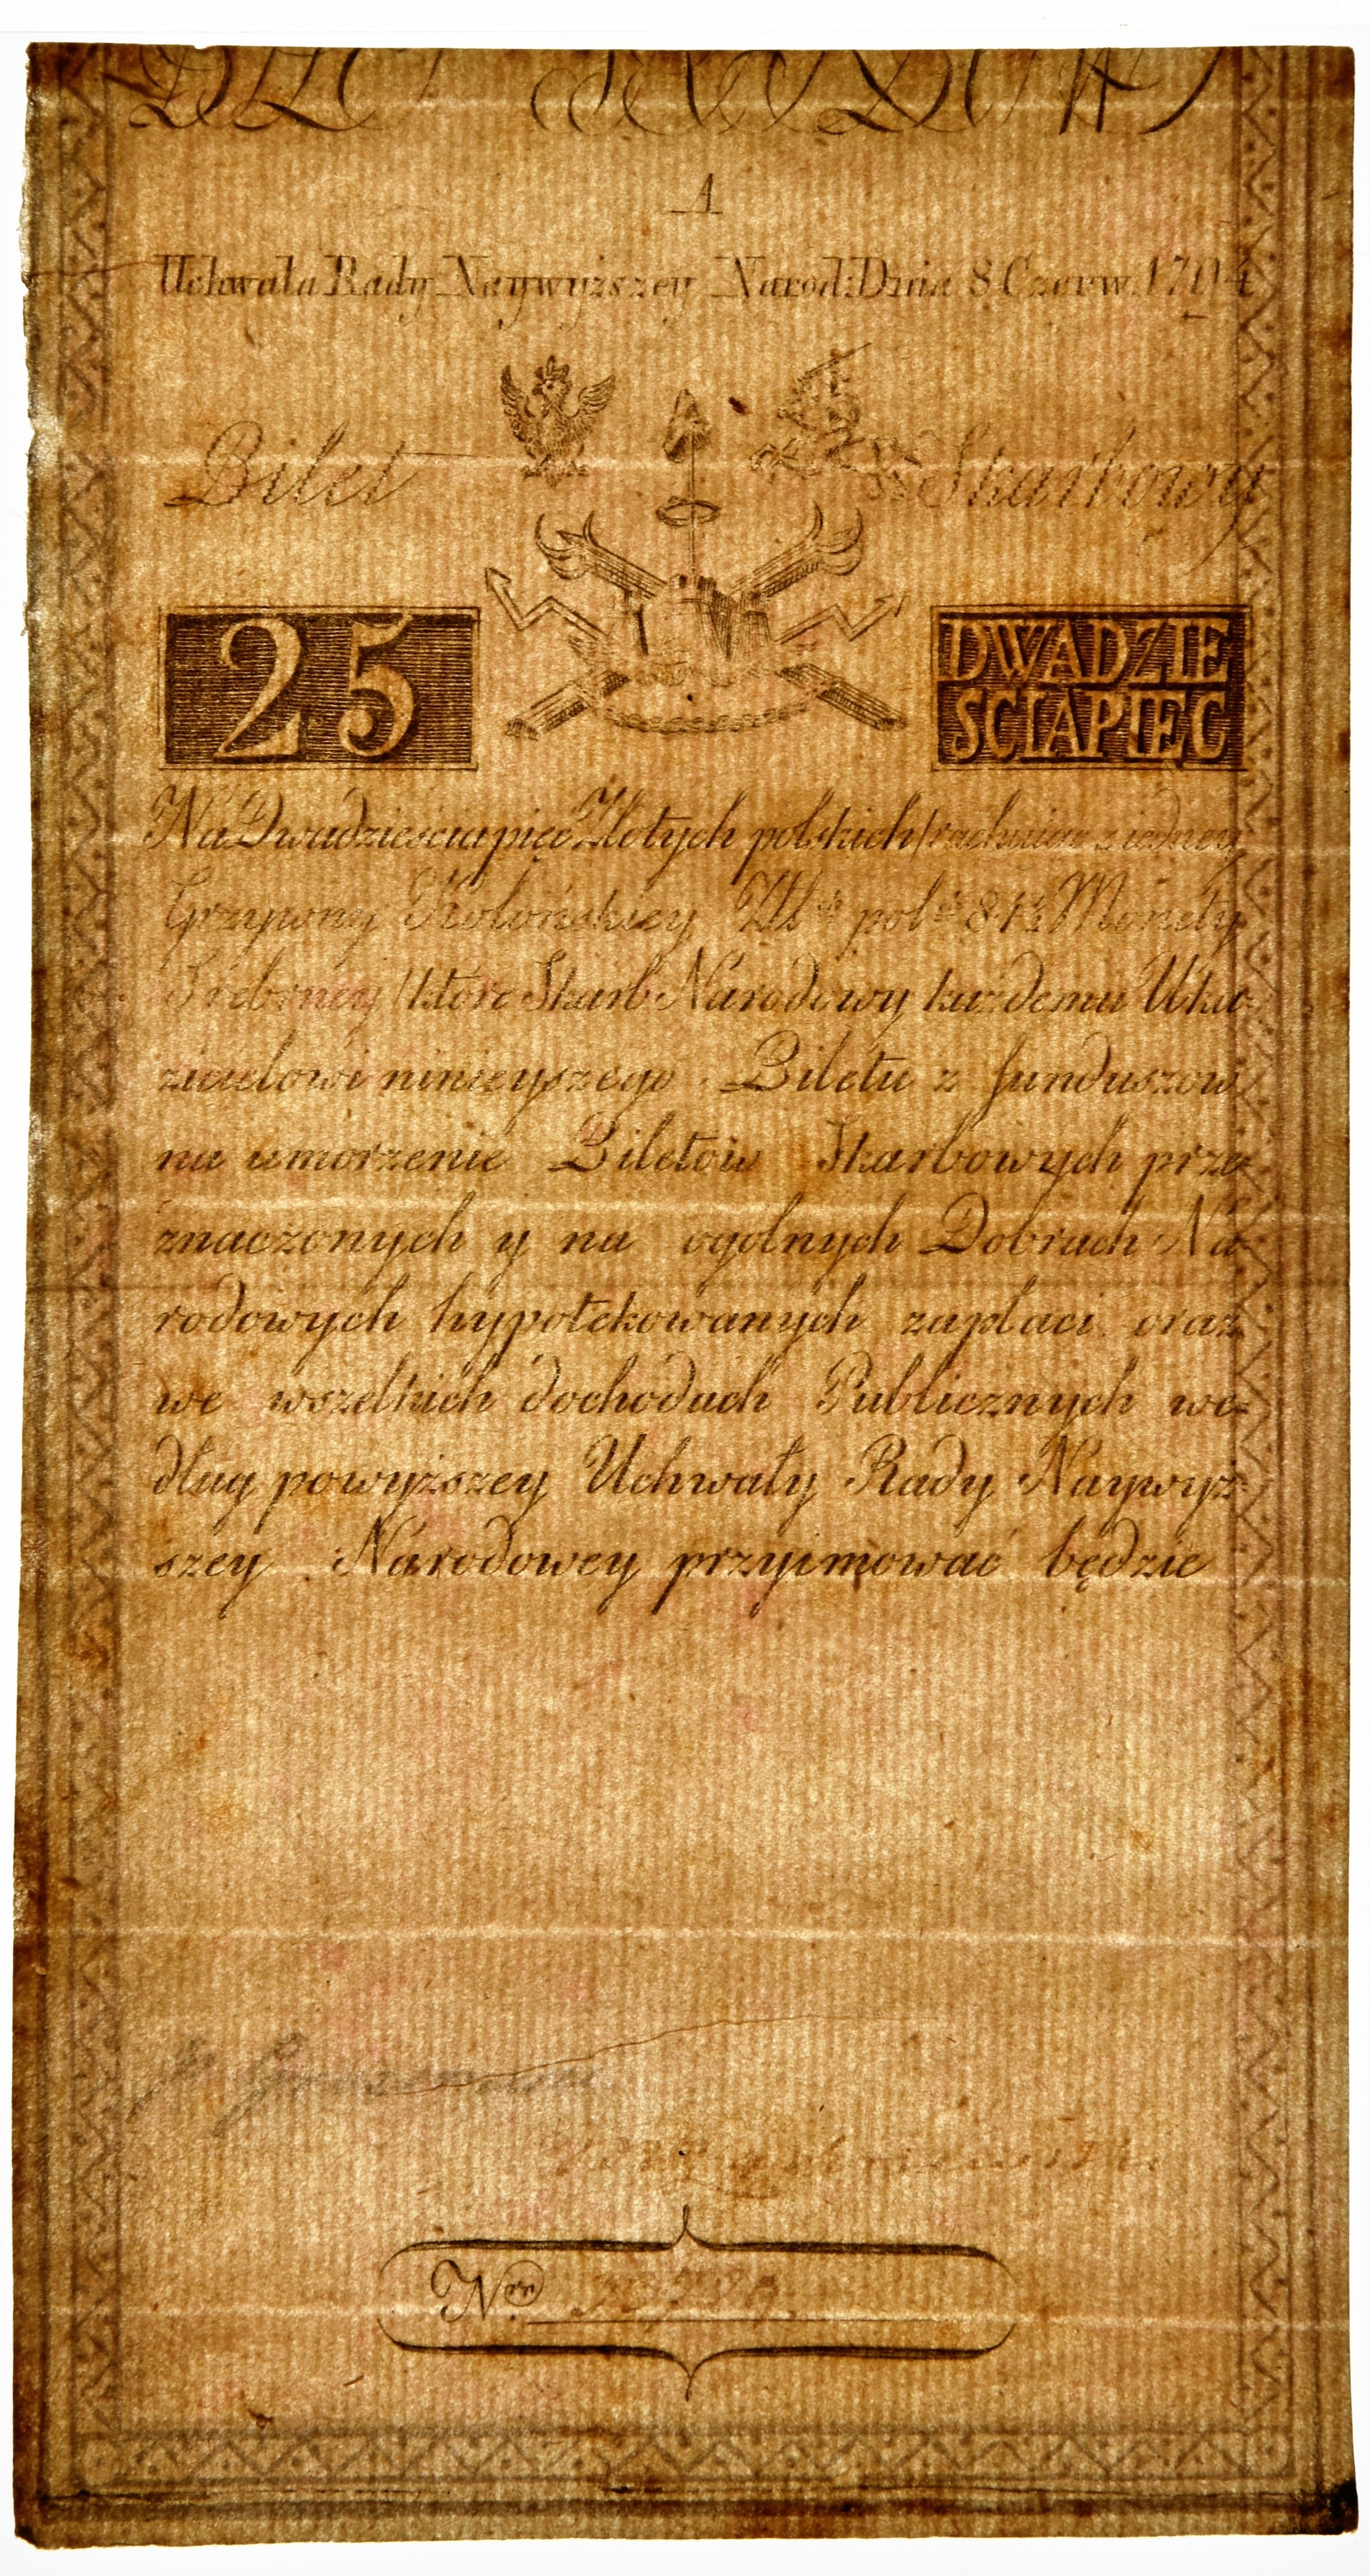 A
Uchwała Rady Naywyższey Narod: Dnia 8 Czerw. 1794
Bilet Skarbowy
25
DWADZIE
SCIAPIĘĆ
Na Dwadzieściapięć Złotych polskich /rachuiąc z iedney
Grzywny Kolońskiey Zł: pol: 84½ Monety
Srebrney/ które Skarb Narodowy każdemu Uka-
zicielowi ninieyszego Biletu z funduszow
na umorzenie Biletow Skarbowych prze
znaczonych y na ogolnych Dobrach Na
rodowych hypotekowanych zapłaci oraz
we wszelkich dochodach Publicznych we=
dług powyższey Uchwały Rady Naywyż-
szey Narodowey przyimować będzie
Nro